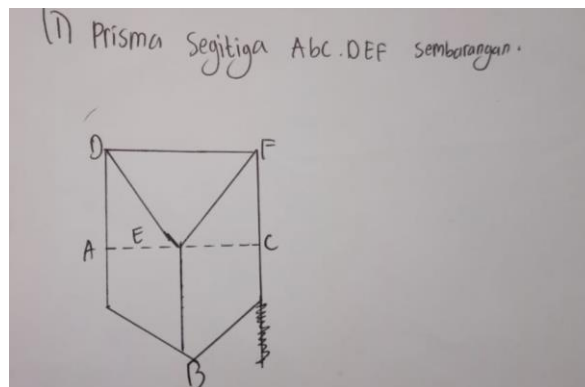 (1) Prisma Segitiga AbC.DEF sembarangan.
D
F
E
A
C
B